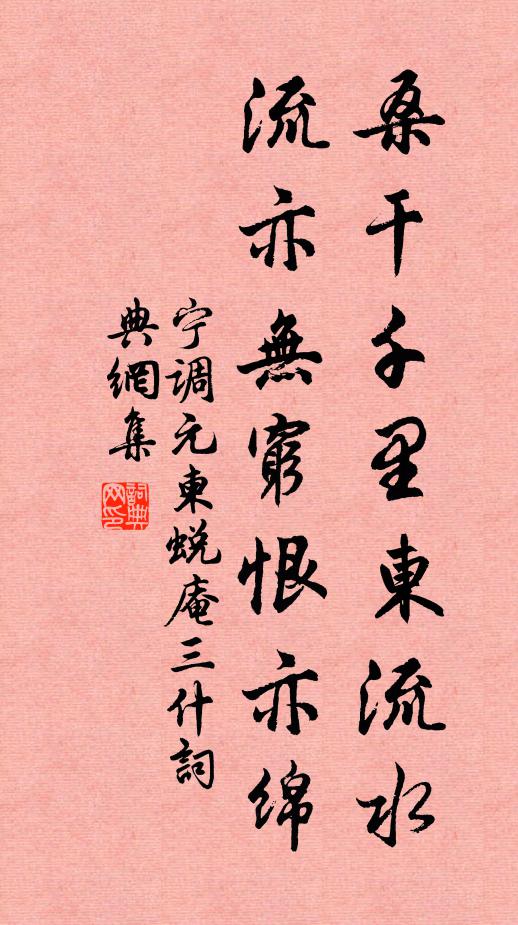 桑干千里東流水
流亦無窮恨亦綿
宁调元東蜕庵三什詞
典網集
詞典网印